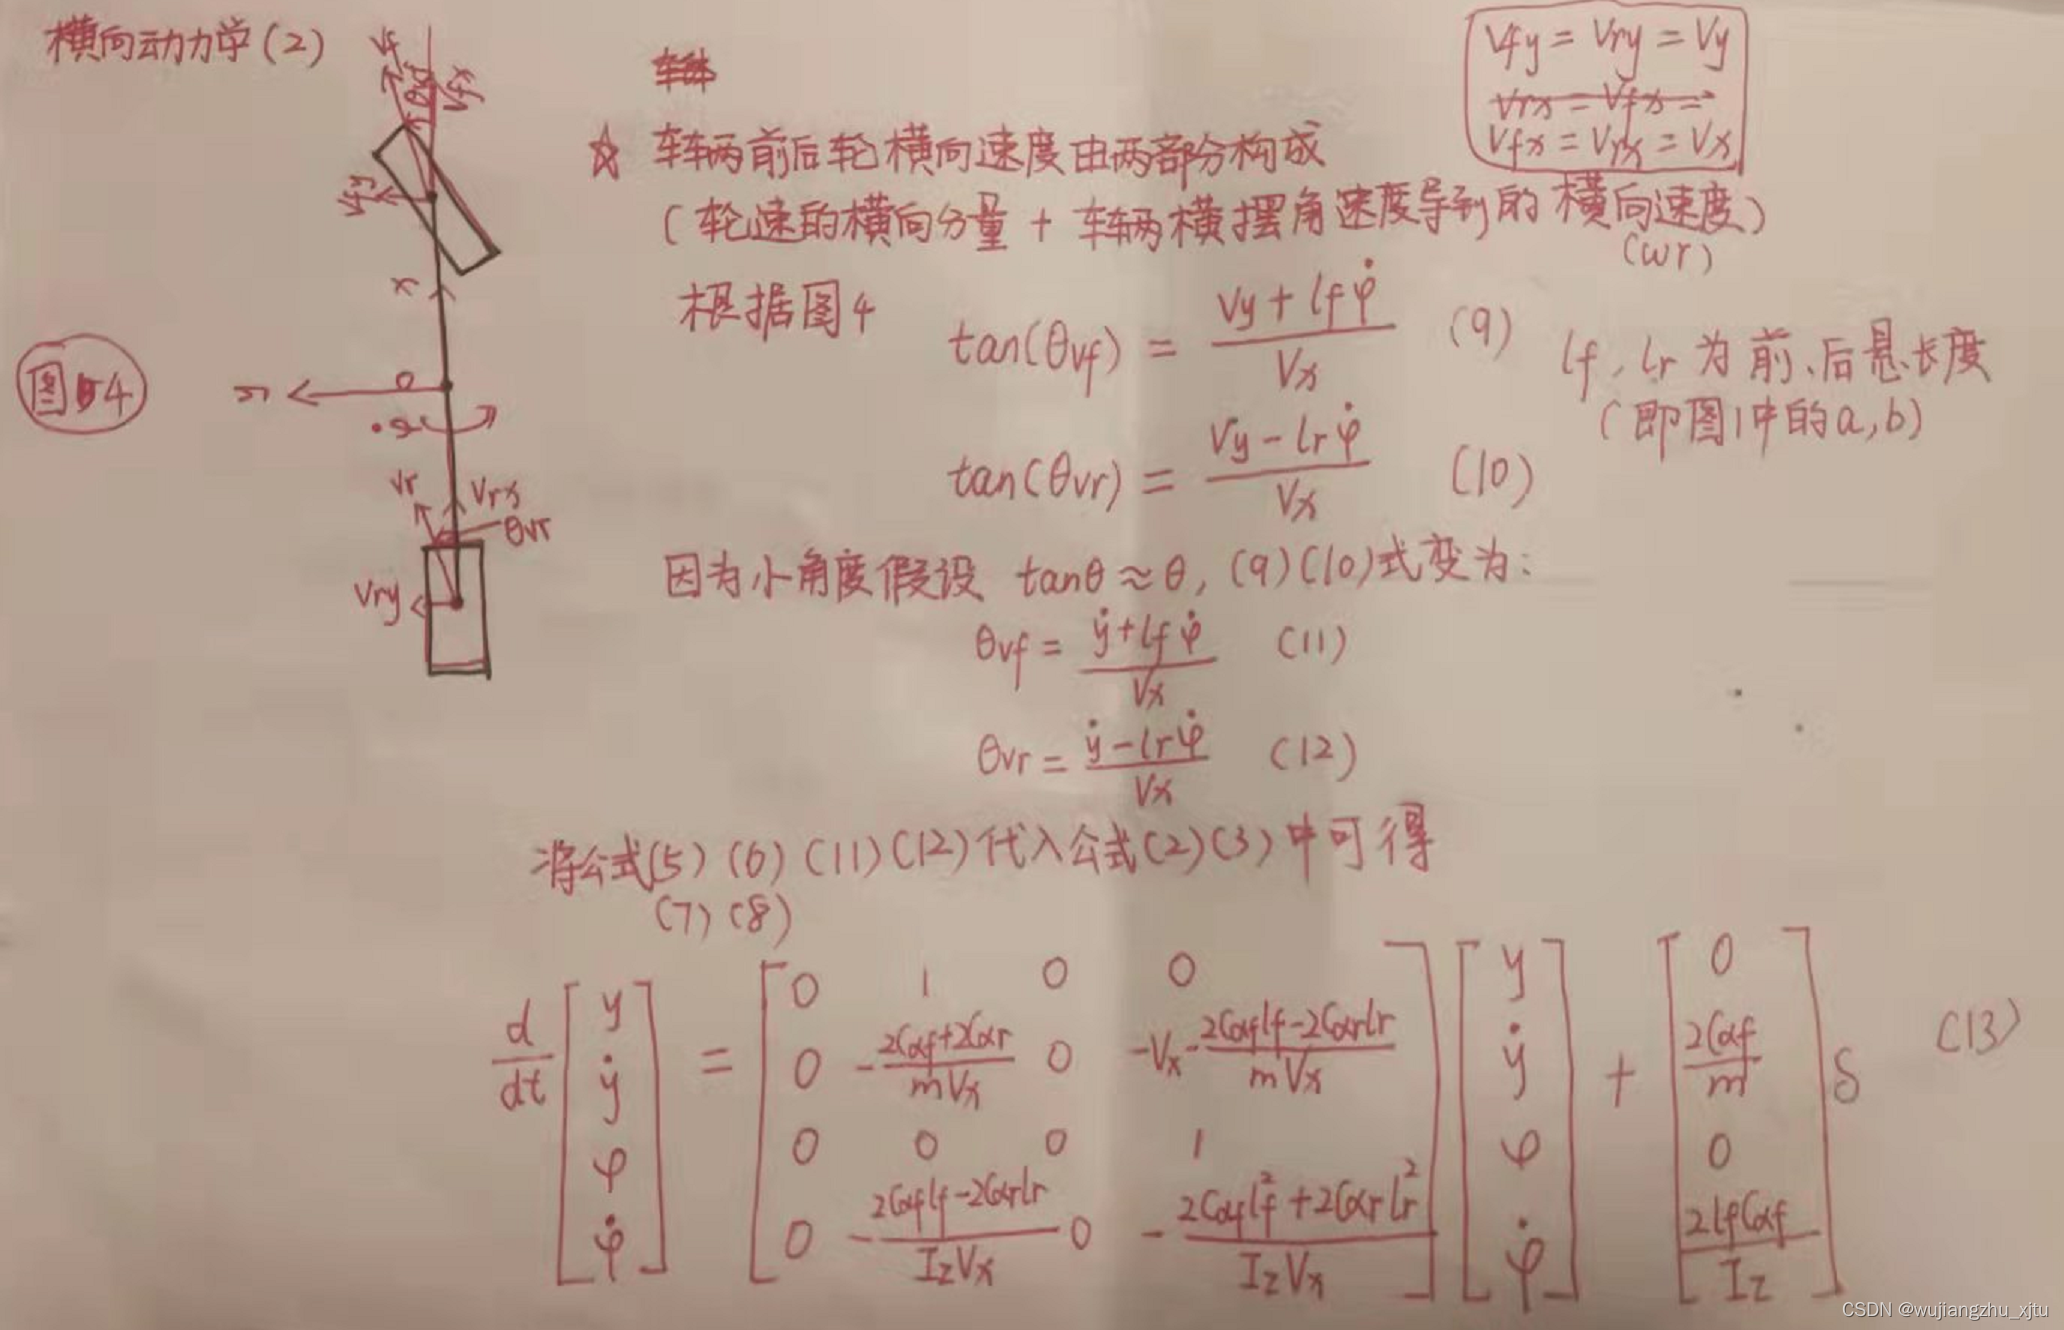 横向动力学(2)
Vfy = Vry = Vy
Vrx = Vfx =
Vfx = Vrx = Vx
☆ 车辆前后轮横向速度由两部分构成
(轮速的横向分量 + 车辆横摆角速度导到的横向速度)
(ωr)
Vf
θvf
Vfx
Vfy
x
o
y
φ̇
Vr
Vrx
θvr
Vry
图4
根据图4
tan(θvf) = (Vy + lf φ̇) / Vx (9)
lf, lr 为前、后悬长度
(即图1中的a,b)
tan(θvr) = (Vy - lr φ̇) / Vx (10)
因为小角度假设 tanθ ≈ θ, (9)(10)式变为:
θvf = (ẏ + lf φ̇) / Vx (11)
θvr = (ẏ - lr φ̇) / Vx (12)
将公式(5)(6)(11)(12)代入公式(2)(3)中可得
(7)(8)
d/dt [y ẏ φ φ̇] = [0 1 0 0
0 -(2Cαf+2Cαr)/(mVx) 0 -Vx-(2Cαf lf-2Cαr lr)/(mVx)
0 0 0 1
0 -(2Cαf lf-2Cαr lr)/(IzVx) 0 -(2Cαf lf²+2Cαr lr²)/(IzVx)] [y ẏ φ φ̇] + [0 2Cαf/m 0 2lfCαf/Iz] δ (13)
CSDN @wujiangzhu_xjtu